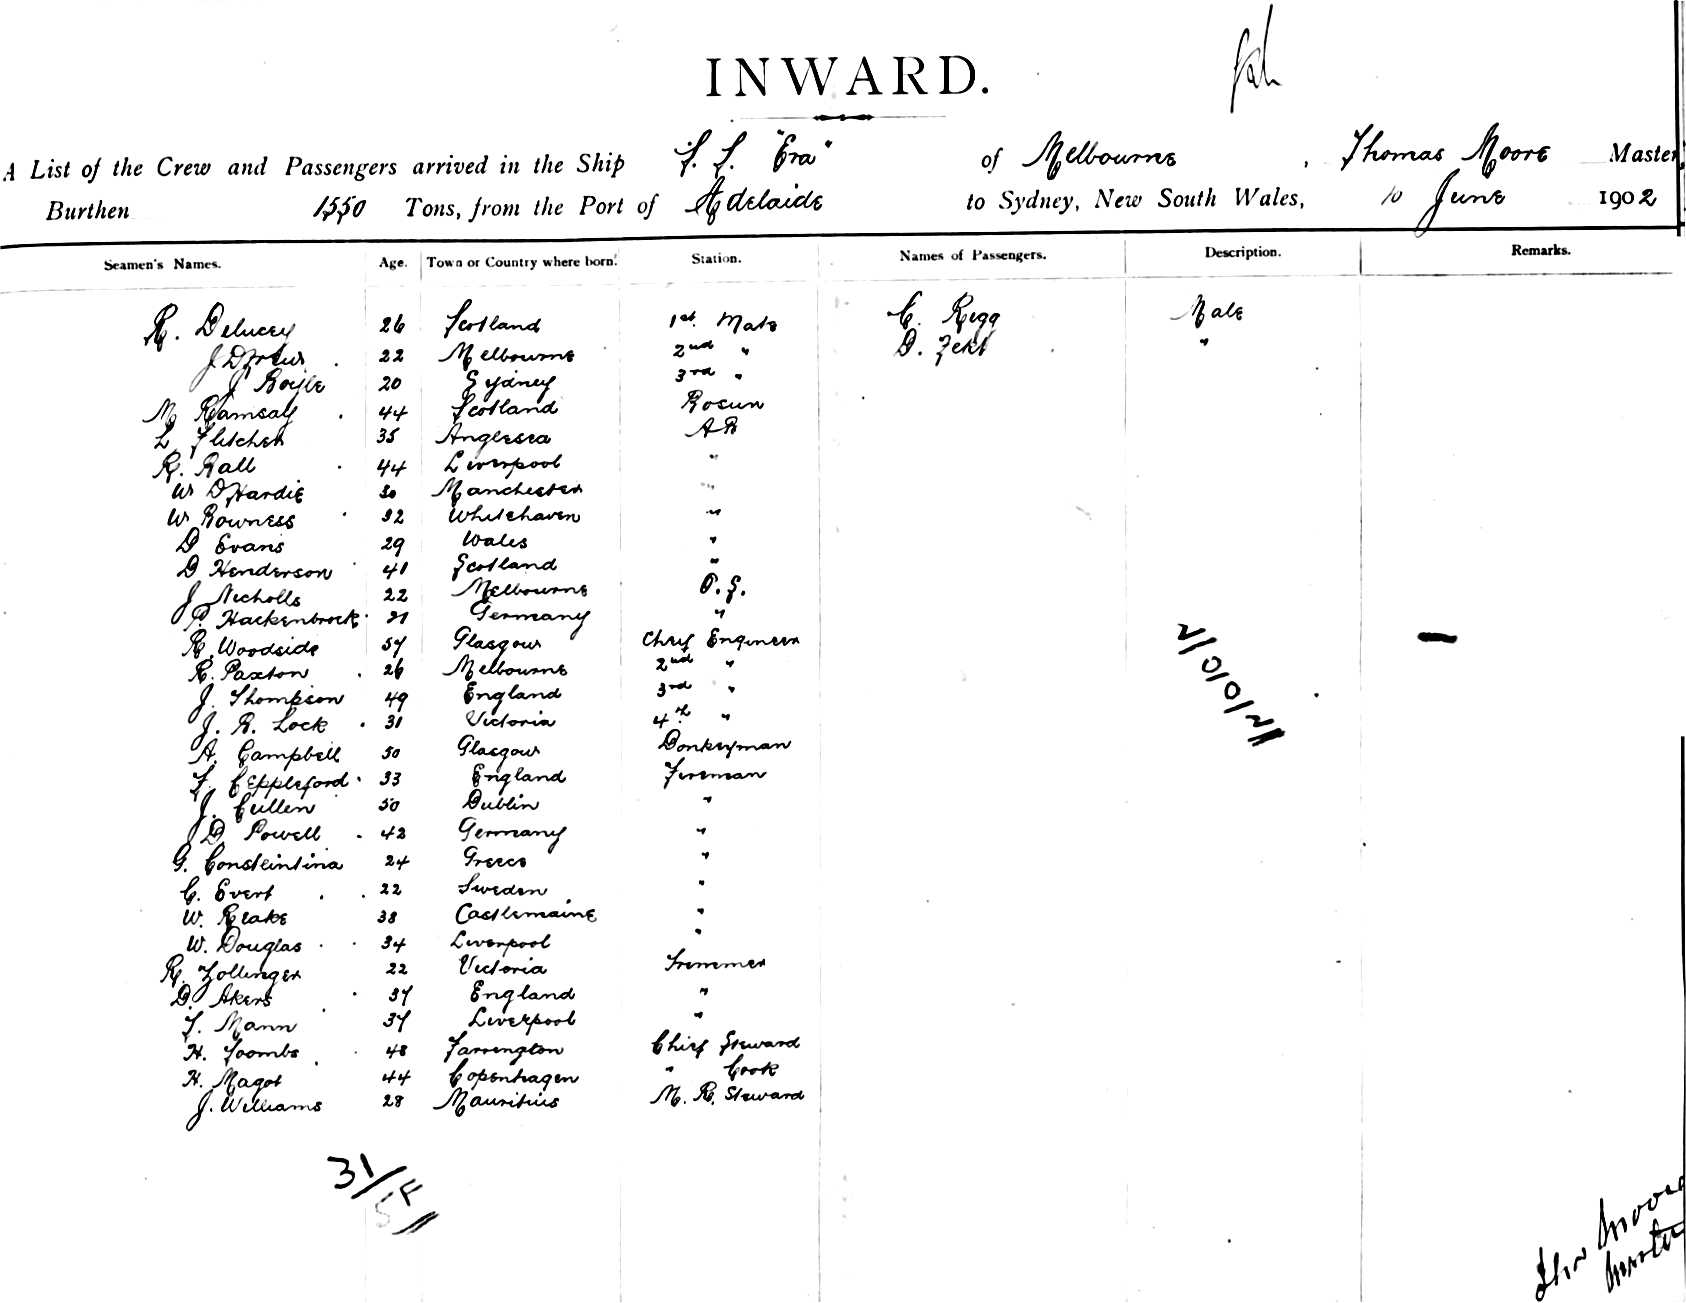 INWARD.
A List of the Crew and Passengers arrived in the Ship S. S. "Era" of Melbourne, Thomas Moore Master
Burthen 1550 Tons, from the Port of Adelaide to Sydney, New South Wales, 10 June 1902
Seamen's Names. Age. Town or Country where born. Station. Names of Passengers. Description. Remarks.
R. Delucey 26 Scotland 1st. Mate C. Rigg Male
J Drew 22 Melbourne 2nd " D. "
J Boyle 20 Sydney 3rd "
M Ramsay 44 Scotland Bosun
L Flitcher 35 Anglesea AB
R. Ball 44 Liverpool "
W D Hardie 30 Manchester "
W Bowness 32 Whitehaven "
D Evans 29 Wales "
D Henderson 41 Scotland "
J Nicholls 22 Melbourne O.S.
P. Hackenbrock 21 Germany "
R. Woodside 57 Glasgow Chief Engineer
R. Paxton 26 Melbourne 2nd "
J. Thompson 49 England 3rd "
J. B. Lock 31 Victoria 4th "
A. Campbell 50 Glasgow Donkeyman
F. C Eppleford 33 England Fireman
J. Cullen 50 Dublin "
J D Powell 42 Germany "
G. Constintina 24 Greece "
C. Evert 22 Sweden "
W. Blake 38 Castlemaine "
W. Douglas 34 Liverpool "
R. Zollinger 22 Victoria Trimmer
D. Akers 37 England "
T. Mann 37 Liverpool "
H. Toombs 48 Farrington Chief Steward
H. Magot 44 Copenhagen " Cook
J. Williams 28 Mauritius M. R. Steward
2/0/0/2
31/5F
Thos Moore
Master